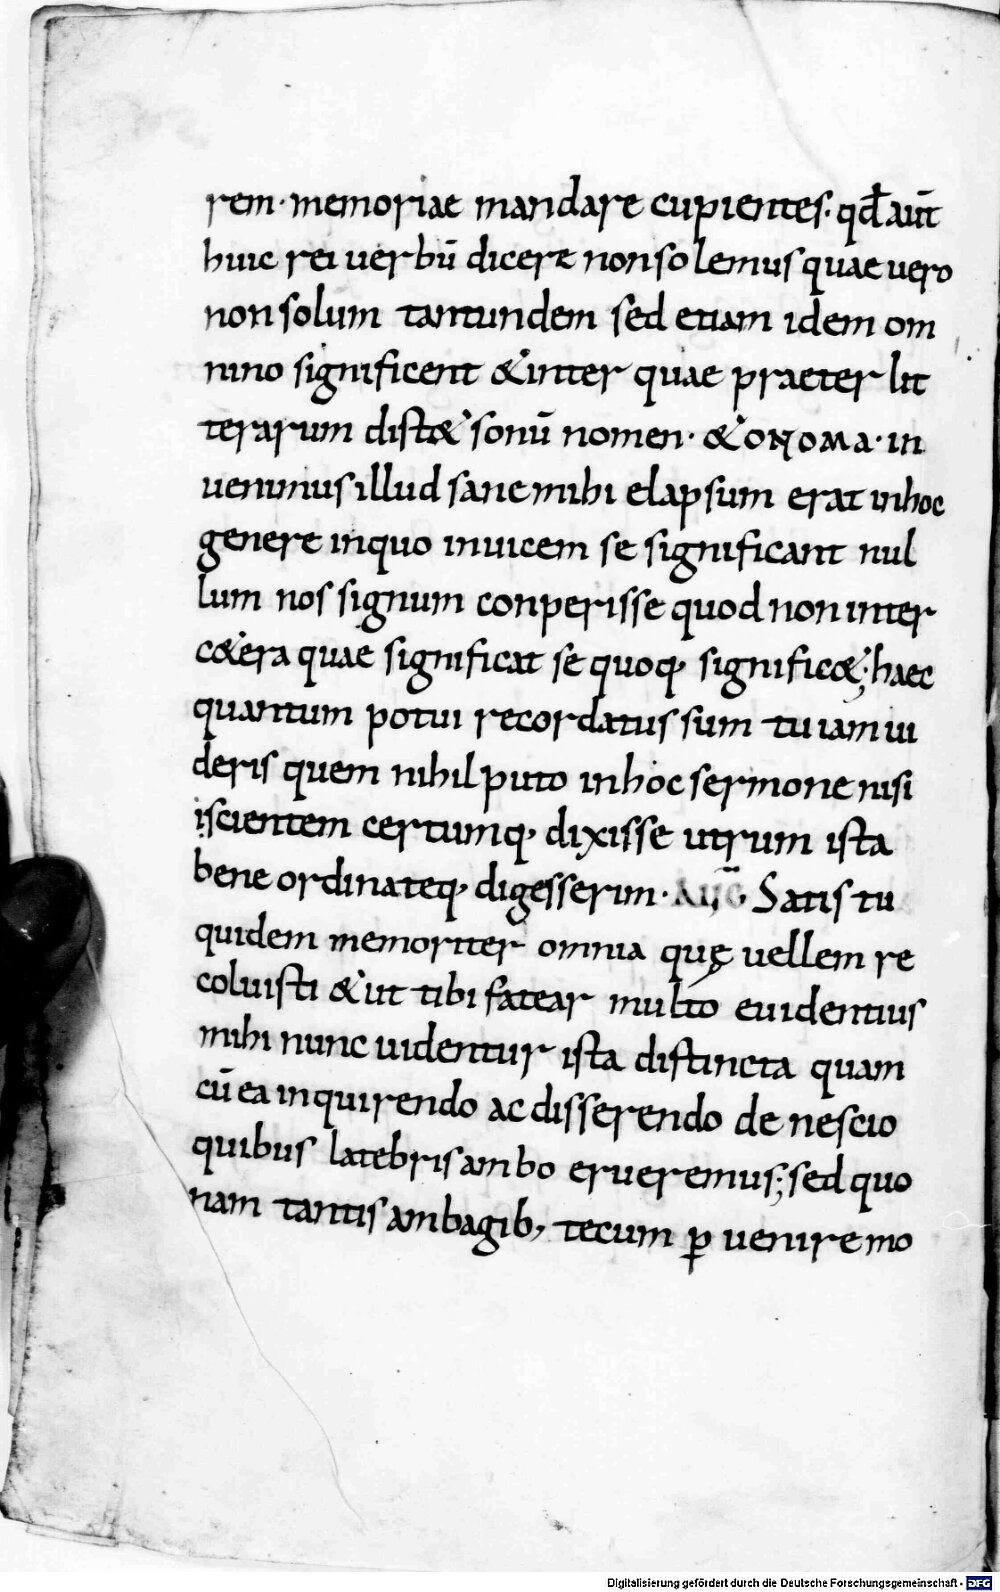 rem· memoriae mandare cupientes· qđ aut̄
huic rei uerbū dicere non solemus quae uero
non solum tantundem sed etiam idem om
nino significent & inter quae praeter lit
terarum dist& sonū nomen· & ONOMA· in
uenimus illud sane mihi elapsum erat in hoc
genere in quo inuicem se significant nul
lum nos signum conperisse quod non inter
c&era quae significat se quoq, signific&; haec
quantum potui recordatus sum tu iam ui
deris quem nihil puto in hoc sermone nisi
iscientem certumq, dixisse utrum ista
bene ordinateq, digesserim· AUḠ Satis tu
quidem memoriter omnia quę uellem re
coluisti & ut tibi fatear multo euidentius
mihi nunc uidentur ista distincta quam
cū ea inquirendo ac disserendo de nescio
quibus latebris ambo erueremus; sed quo
nam tantis ambagib, tecum ꝑuenire mo
Digitalisierung gefördert durch die Deutsche Forschungsgemeinschaft - DFG